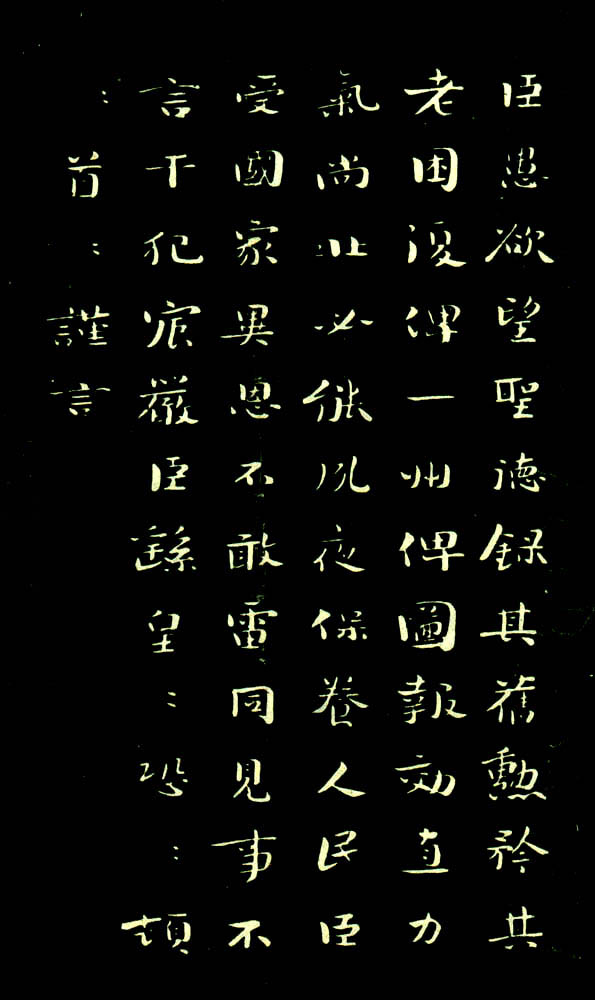 臣愚欲望聖德録其舊勲矜其
老困復俾一州俾圖報効直力
氣尚壯必能夙夜保養人民臣
受國家異恩不敢雷同見事不
言干犯宸嚴臣繇皇：恐：頓
：首：謹言